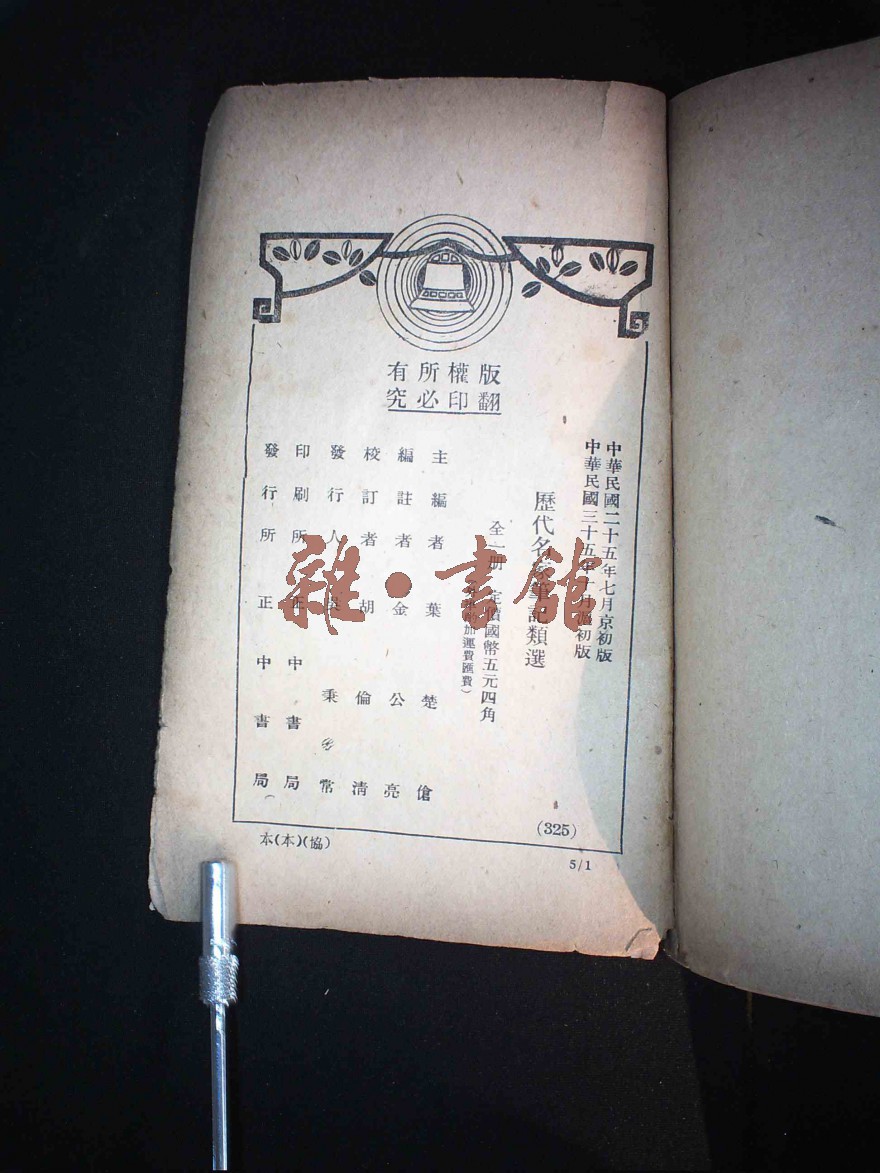 版權所有
翻印必究
中華民國二十五年七月京初版
中華民國三十五年十一月滬初版
歷代名家筆記類選
全一冊 定價國幣五元四角
加運費匯費）
主編者 葉楚傖
編註者 金公亮
校訂者 胡倫清
發行人 吳秉常
印刷所 正中書局
發行所 正中書局
(325)
本(本)(協)
5/1
雜·書館